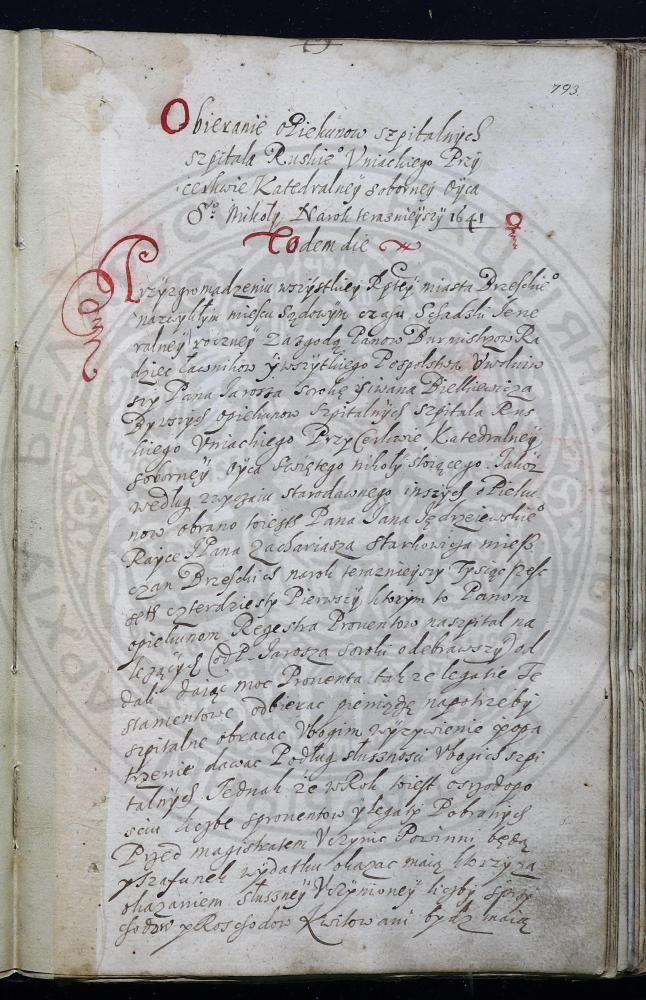 793.
Obieranie oPiekunow szpitalnych
szpitala Ruskie° Vniackiego Przy
cerkwie Katedralney soborney Oyca
S° Mikoły Narok terazniejszy 1641
Eodem die
Przy zgromadzeniu wszystkiey Rptey miasta Brzeskie°
nazwykłym miescu Sądowym czasu Sessadzki Jene
ralney roczney Zazgodą Panow Burmistrzow Ra
dziec Ławnikow y wszytkiego Pospolstwa Vwolniw
szy Pana Jarosza Sorokę y Iwana Bielkiewicza
Bywszych opiekunow szpitalnych szpitala Rus
kiego Vniackiego Przy Cerkwie Katedralney
soborney Oyca Swiętego nikoły stoiącego. Jakoż
według zwyczaiu starodawnego inszych oPieku
now obrano toiest Pana Jana Jędrzeiewskie°
Rayce JPana Zachariasza Starkowicza miesz
czan Brzeskich narok terazniejszy Tysiąc szesc
seth czterdziesty Pierwszy ktorym to Panom
opiekunom Regestra Prouentow naszpital na
leżących (od P. Jarosza Soroki odebrawszy) od
dali daiąc moc Prouenta także legatie Te
stamentowe odbierac pieniądze napotrzeby
szpitalne obracac Vbogim wyzywienie y opa
trzenie dawac Podług słusznosci Vbogich szpi
talnych. Jednak że wRok toiest
sciu liczbę sprouentow y legaty Pobranych
Przed magistratem Vczynic Powinni będą
y szafunek wydatku okazac maią ktorzy za
okazaniem słuszney Vczynioney liczby sprzy
chodow y Roschodow Kwitowani bydz maią